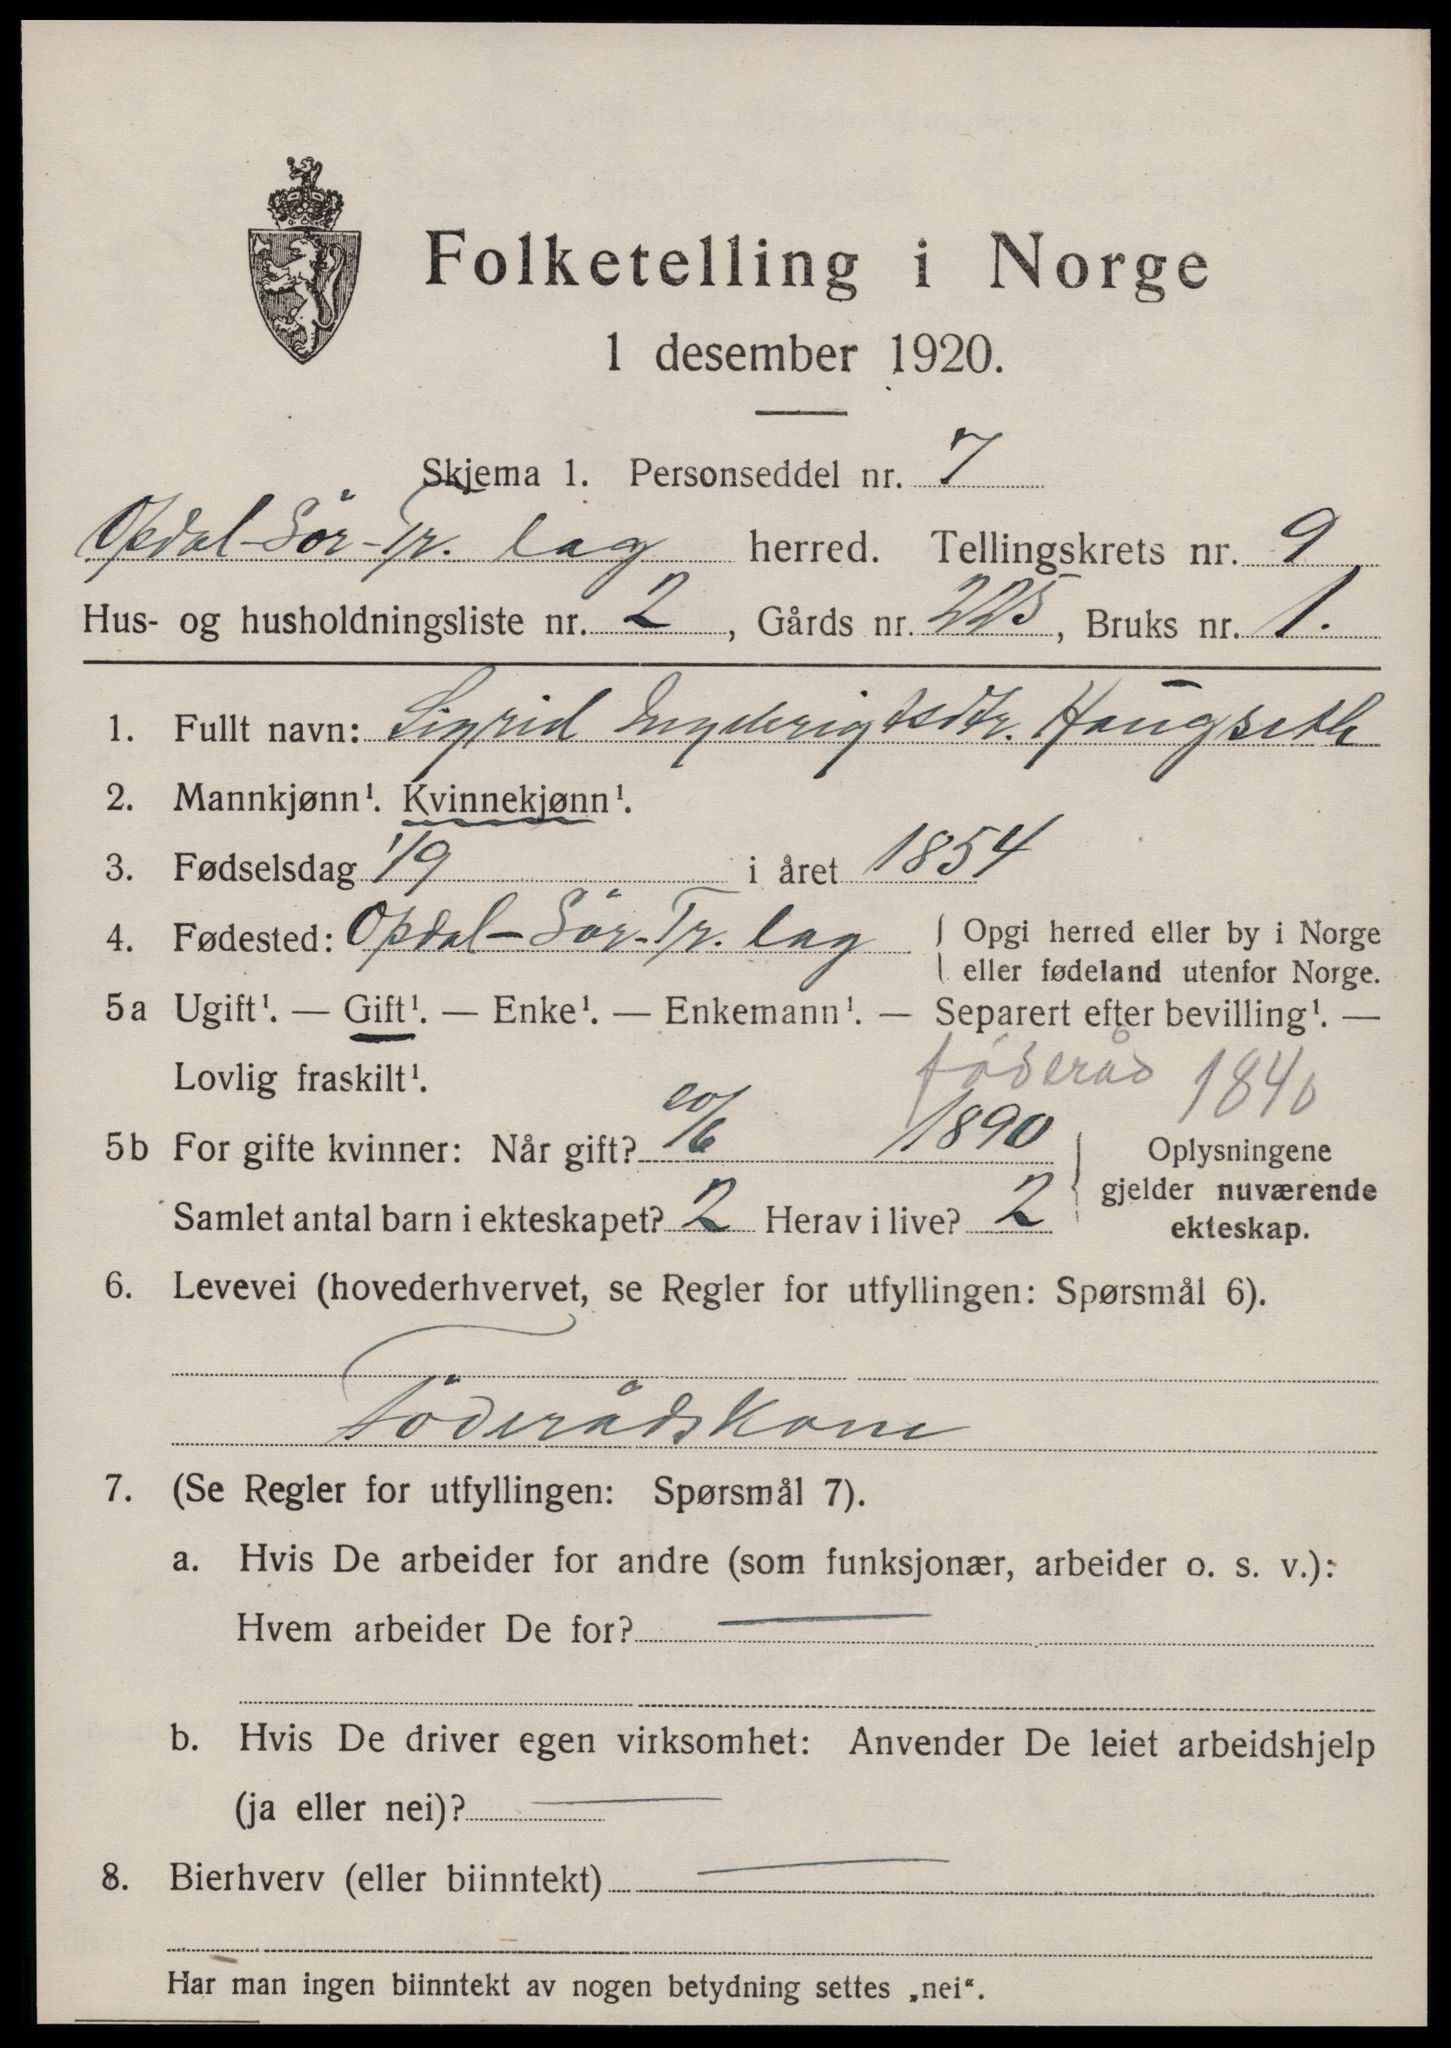 Folketelling i Norge
1 desember 1920.
Skjema 1. Personseddel nr. 7
Opdal-Sör-Tr. lag herred. Tellingskrets nr. 9
Hus- og husholdningsliste nr. 2, Gårds nr. 225, Bruks nr. 1.
1. Fullt navn: Sigrid Haugseth
2. Mannkjønn¹. Kvinnekjønn¹.
3. Fødselsdag 1/9 i året 1854
4. Fødested: Opdal-Sör-Tr. lag { Opgi herred eller by i Norge
eller fødeland utenfor Norge.
5a Ugift¹. — Gift¹. — Enke¹. — Enkemann¹. — Separert efter bevilling¹. —
Lovlig fraskilt¹. föderåd 1840
5b For gifte kvinner: Når gift? 20/6 1890
Samlet antal barn i ekteskapet? 2 Herav i live? 2
Oplysningene
gjelder nuværende
ekteskap.
6. Levevei (hovederhvervet, se Regler for utfyllingen: Spørsmål 6).
Föderådskone
7. (Se Regler for utfyllingen: Spørsmål 7).
a. Hvis De arbeider for andre (som funksjonær, arbeider o. s. v.):
Hvem arbeider De for? —
b. Hvis De driver egen virksomhet: Anvender De leiet arbeidshjelp
(ja eller nei)? —
8. Bierhverv (eller biinntekt) —
Har man ingen biinntekt av nogen betydning settes „nei“.